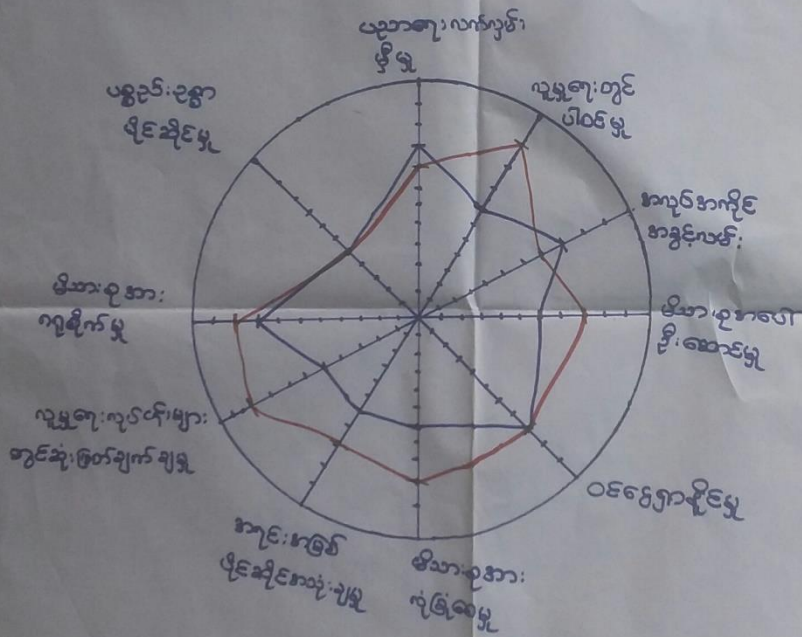 ပညာရေးလက်လှမ်း
မှီမှု
လူမှုရေးတွင်
ပါဝင်မှု
အလုပ်အကိုင်
အခွင့်လမ်း
မိသားစုအပေါ်
ဦးဆောင်မှု
ဝင်ငွေရှာနိူင်မှု
မိသားစုအား
လုံခြုံစေမှု
အရင်းအမြစ်
ပိုင်ဆိုင်အသုံးချမှု
လူမှုရေးလုပ်ငန်းများ
တွင်ဆုံးဖြတ်ချက်ချမှု
မိသားစုအား
ဂရုစိုက်မှု
ပစ္စည်းဥစ္စာ
ပိုင်ဆိုင်မှု